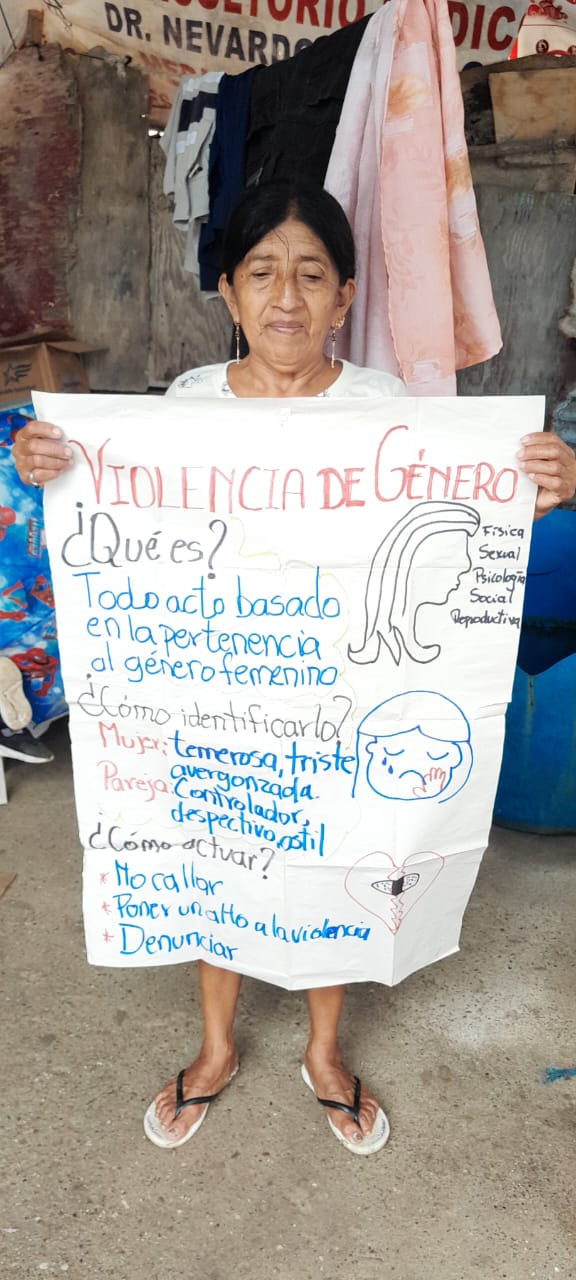 CONSULTORIO MEDIC
DR. NEVARDO
VIOLENCIA DE GÉNERO
¿Qué es?
Todo acto basado
en la pertenencia
al género femenino
Física
Sexual
Psicología
Social
Reproductiva
¿Cómo identificarlo?
Mujer: temerosa, triste
avergonzada.
Pareja: Controlador,
despectivo, ostil
¿Cómo actuar?
* No callar
* Poner un alto a la violencia
* Denunciar